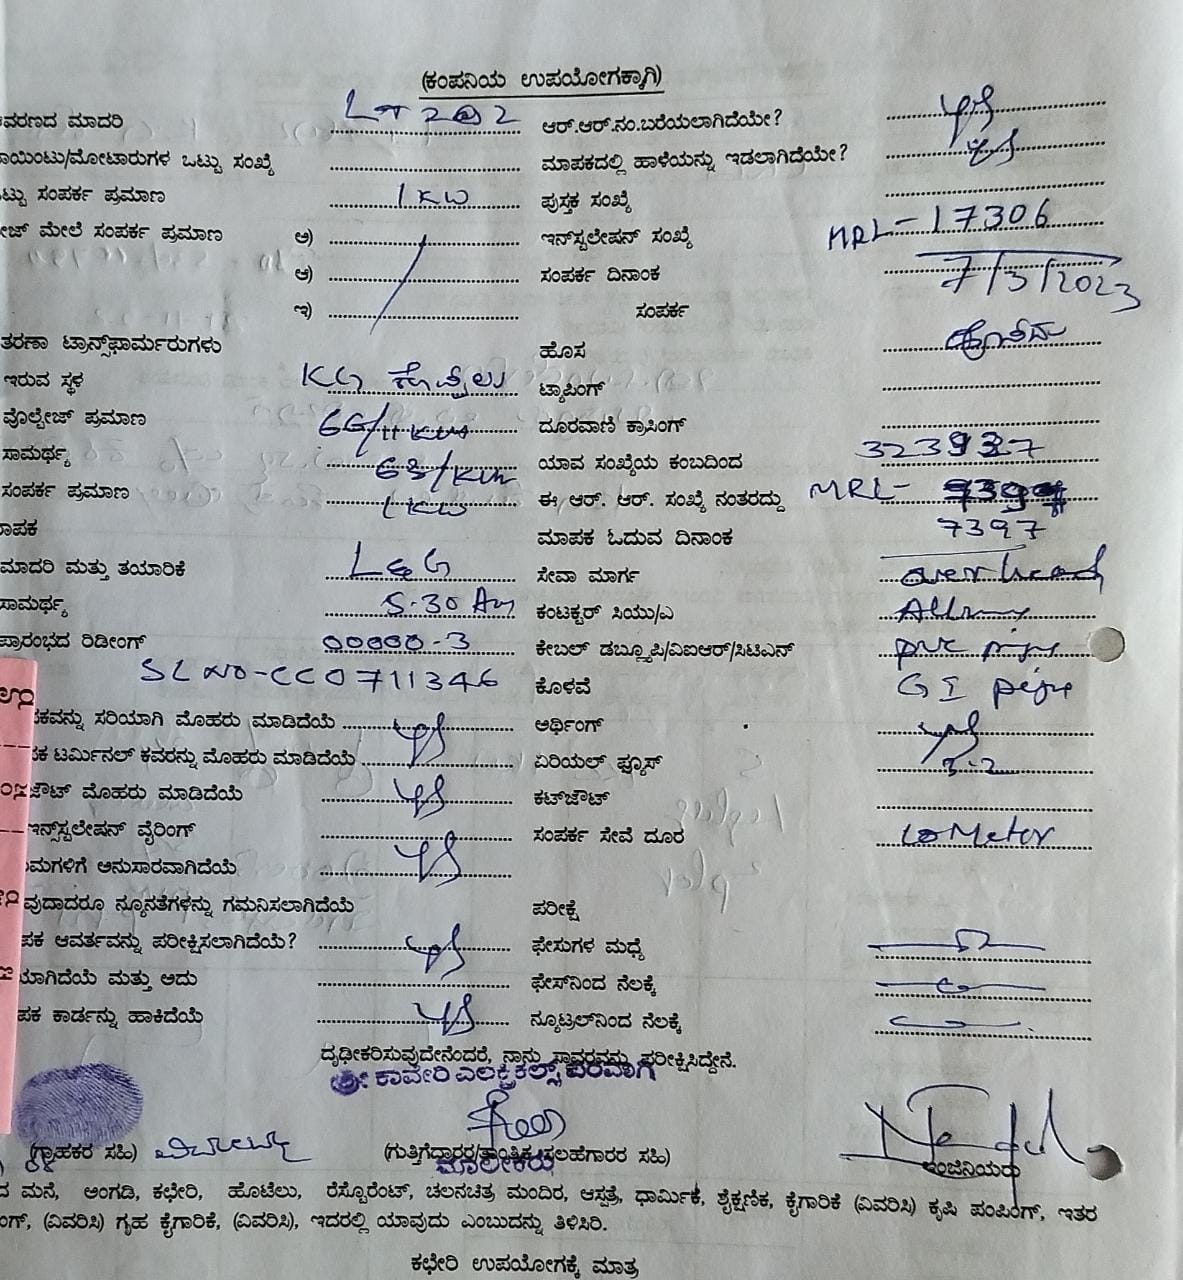 (ಕಂಪನಿಯ ಉಪಯೋಗಕ್ಕಾಗಿ)
ವರಣದ ಮಾದರಿ LT 2@2 ಆರ್.ಆರ್.ನಂ.ಬರೆಯಲಾಗಿದೆಯೇ?
ಾಯಿಂಟು/ಮೋಟಾರುಗಳ ಒಟ್ಟು ಸಂಖ್ಯೆ ಮಾಪಕದಲ್ಲಿ ಹಾಳೆಯನ್ನು ಇಡಲಾಗಿದೆಯೇ?
ಟ್ಟು ಸಂಪರ್ಕ ಪ್ರಮಾಣ 1KW ಪುಸ್ತಕ ಸಂಖ್ಯೆ
ೇಜ್ ಮೇಲೆ ಸಂಪರ್ಕ ಪ್ರಮಾಣ ಅ) ಇನ್‌ಸ್ಟಲೇಷನ್ ಸಂಖ್ಯೆ MRL-17306
ಆ) ಸಂಪರ್ಕ ದಿನಾಂಕ 7/3/2023
ಇ) ಸಂಪರ್ಕ
ತರಣಾ ಟ್ರಾನ್ಸ್‌ಫಾರ್ಮರುಗಳು ಹೊಸ
ಇರುವ ಸ್ಥಳ KG ಕೊಪ್ಪಲು ಟ್ಯಾಪಿಂಗ್
ವೊಲ್ಟೇಜ್ ಪ್ರಮಾಣ 66/11 ದೂರವಾಣಿ ಕ್ರಾಸಿಂಗ್
ಸಾಮರ್ಥ್ಯ 63/ ಯಾವ ಸಂಖ್ಯೆಯ ಕಂಬದಿಂದ 323937
ಸಂಪರ್ಕ ಪ್ರಮಾಣ 1KW ಈ ಆರ್. ಆರ್. ಸಂಖ್ಯೆ ನಂತರದ್ದು MRL-
ಾಪಕ ಮಾಪಕ ಓದುವ ದಿನಾಂಕ 7397
ಮಾದರಿ ಮತ್ತು ತಯಾರಿಕೆ L&G ಸೇವಾ ಮಾರ್ಗ over head
ಸಾಮರ್ಥ್ಯ 5-30 Am ಕಂಟಕ್ಟರ್ ಸಿಯು/ಎ
ಪ್ರಾರಂಭದ ರಿಡೀಂಗ್ 00000-3 ಕೇಬಲ್ ಡಬ್ಲ್ಯೂಪಿ/ವಿಐಆರ್/ಸಿಟಿಎನ್ pvc pipe
SL NO-CC0711346 ಕೊಳವೆ GI pipe
ಕವನ್ನು ಸರಿಯಾಗಿ ಮೊಹರು ಮಾಡಿದೆಯೆ ಅರ್ಥಿಂಗ್
ಕ ಟರ್ಮಿನಲ್ ಕವರನ್ನು ಮೊಹರು ಮಾಡಿದೆಯೆ ಏರಿಯಲ್ ಫ್ಯೂಸ್
ಜೌಟ್ ಮೊಹರು ಮಾಡಿದೆಯೆ ಕಟ್‌ಜೌಟ್
ಇನ್ಸ್‌ಸ್ಟಲೇಷನ್ ವೈರಿಂಗ್ ಸಂಪರ್ಕ ಸೇವೆ ದೂರ 10 Meter
ಮಗಳಿಗೆ ಅನುಸಾರವಾಗಿದೆಯೆ
ವುದಾದರೂ ನ್ಯೂನತೆಗಳನ್ನು ಗಮನಿಸಲಾಗಿದೆಯೆ ಪರೀಕ್ಷೆ
ಪಕ ಆವರ್ತವನ್ನು ಪರೀಕ್ಷಿಸಲಾಗಿದೆಯೆ? ಫೇಸುಗಳ ಮಧ್ಯೆ
ಯಾಗಿದೆಯೆ ಮತ್ತು ಅದು ಫೇಸ್‌ನಿಂದ ನೆಲಕ್ಕೆ
ಪಕ ಕಾರ್ಡನ್ನು ಹಾಕಿದೆಯೆ ನ್ಯೂಟ್ರಲ್‌ನಿಂದ ನೆಲಕ್ಕೆ
ದೃಢೀಕರಿಸುವುದೇನೆಂದರೆ, ನಾನು ಸ್ಥಾವರವನ್ನು ಪರೀಕ್ಷಿಸಿದ್ದೇನೆ.
ಶ್ರೀ ಕಾವೇರಿ ಎಲೆಕ್ಟ್ರಿಕಲ್ಸ್ ಪರವಾಗಿ
(ಗ್ರಾಹಕರ ಸಹಿ) (ಗುತ್ತಿಗೆದಾರರ/ತಾಂತ್ರಿಕ ಸಲಹೆಗಾರರ ಸಹಿ)
ಮಾಲೀಕರು ಇಂಜಿನಿಯರು
ದ ಮನೆ, ಅಂಗಡಿ, ಕಛೇರಿ, ಹೊಟೆಲು, ರೆಸ್ಟೊರೆಂಟ್, ಚಲನಚಿತ್ರ ಮಂದಿರ, ಆಸ್ಪತ್ರೆ, ಧಾರ್ಮಿಕೆ, ಶೈಕ್ಷಣಿಕ, ಕೈಗಾರಿಕೆ (ವಿವರಿಸಿ) ಕೃಷಿ ಪಂಪಿಂಗ್, ಇತರ
ಂಗ್, (ವಿವರಿಸಿ) ಗೃಹ ಕೈಗಾರಿಕೆ, (ವಿವರಿಸಿ), ಇದರಲ್ಲಿ ಯಾವುದು ಎಂಬುದನ್ನು ತಿಳಿಸಿರಿ.
ಕಛೇರಿ ಉಪಯೋಗಕ್ಕೆ ಮಾತ್ರ